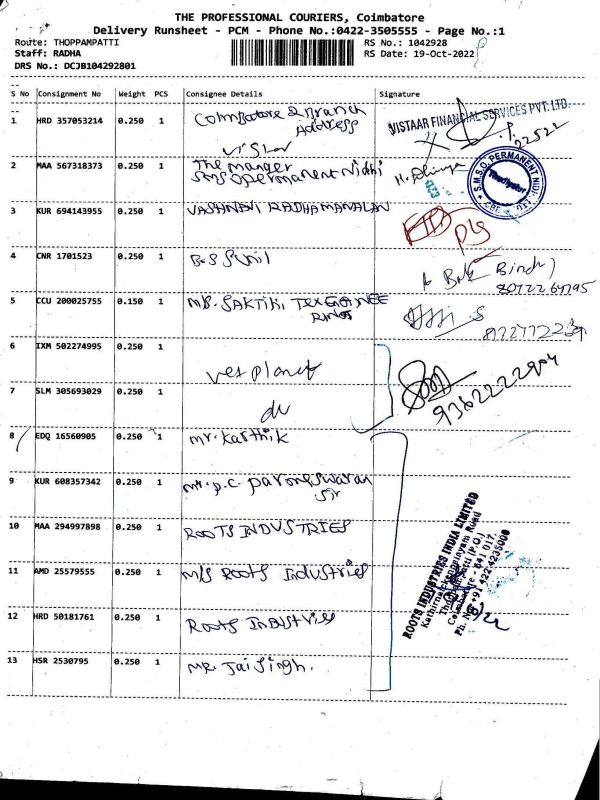 THE PROFESSIONAL COURIERS, Coimbatore
Delivery Runsheet - PCM - Phone No.:0422-3505555 - Page No.:1
Route: THOPPAMPATTI RS No.: 1042928
Staff: RADHA RS Date: 19-Oct-2022
DRS No.: DCJB104292801
S No Consignment No Weight PCS Consignee Details Signature
1 HRD 357053214 0.250 1 Coimbatore 2 Branch
Address
VISTAAR FINANCIAL SERVICES PVT. LTD.
2 MAA 567318373 0.250 1 The manger
SMS O permanent Nidhi
S.M.S.O. PERMANENT NIDHI
3 KUR 694143955 0.250 1 RADHAMANALAN
4 CNR 1701523 0.250 1 B.S Sunil
Bindu
5 CCU 200025755 0.150 1 M/S. SAKTHI
6 IXM 502274995 0.250 1
vet planet
7 SLM 305693029 0.250 1
do
8 EDQ 16560905 0.250 1 mr. Karthik
9 KUR 608357342 0.250 1 Mr. p.c parameswaran
Sir
10 MAA 294997898 0.250 1 ROOTS INDUSTRIES
11 AMD 25579555 0.250 1 M/s ROOTS Industries
12 HRD 50181761 0.250 1 Roots Industries
13 HSR 2530795 0.250 1 MR. Jai Singh.
ROOTS INDUSTRIES INDIA LIMITED
Coimbatore - 641 017.
Ph. No: +91 422 4235000